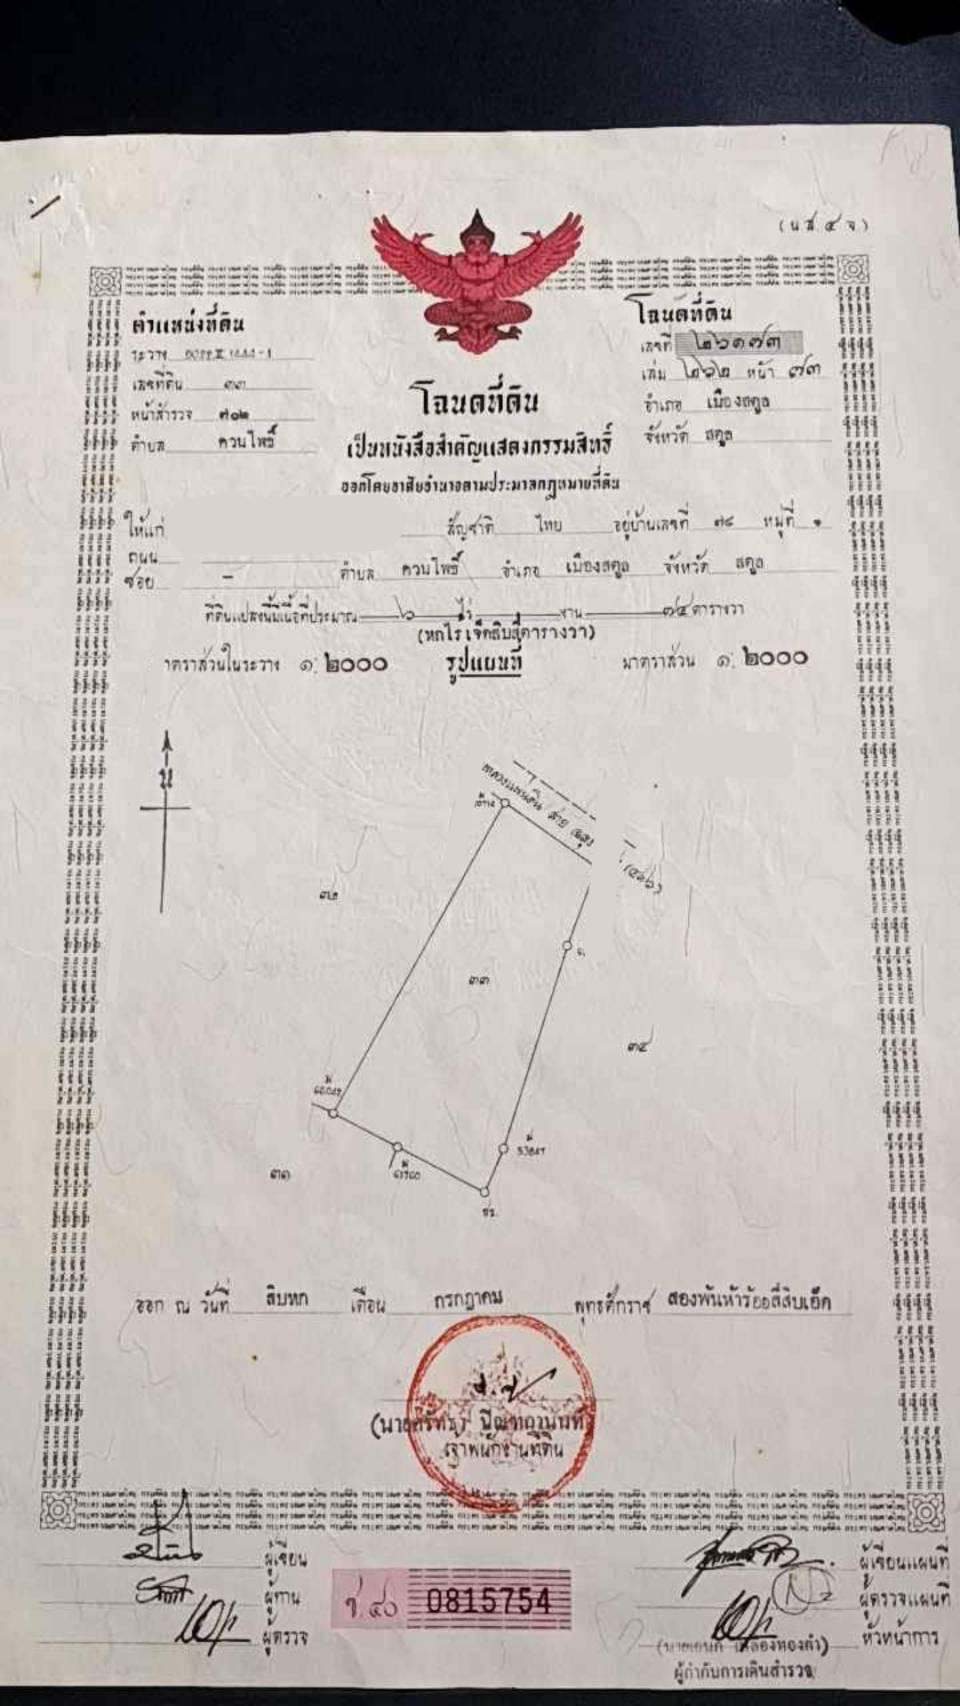 (น.ส. ๔ จ.)
ตำแหน่งที่ดิน
ระวาง
เลขที่ดิน ๓๓
หน้าสำรวจ ๗๐๒
ตำบล ควนโพธิ์
โฉนดที่ดิน
เลขที่ ๒๖๑๗๓
เล่ม ๒๖๒ หน้า ๗๓
อำเภอ เมืองสตูล
จังหวัด สตูล
โฉนดที่ดิน
เป็นหนังสือสำคัญแสดงกรรมสิทธิ์
ออกโดยอาศัยอำนาจตามประมวลกฎหมายที่ดิน
ให้แก่ สัญชาติ ไทย อยู่บ้านเลขที่ ๗๘ หมู่ที่ ๑
ถนน
ซอย - ตำบล ควนโพธิ์ อำเภอ เมืองสตูล จังหวัด สตูล
ที่ดินแปลงนี้มีเนื้อที่ประมาณ ๖ ไร่ - งาน ๗๔ ตารางวา
(หกไร่ เจ็ดสิบสี่ตารางวา)
าตราส่วนในระวาง ๑:๒๐๐๐ รูปแผนที่ มาตราส่วน ๑:๒๐๐๐
น
ทางหลวงแผ่นดิน สาย
๓๒
๓๓
๓๔
๓๑
ออก ณ วันที่ สิบหก เดือน กรกฎาคม พุทธศักราช สองพันห้าร้อยสี่สิบเอ็ด
เจ้าพนักงานที่ดิน
ผู้เขียน
ผู้ทาน
ผู้ตรวจ
ช.๔๐ 0815754
ผู้เขียนแผนที่
ผู้ตรวจแผนที่
หัวหน้าการ
ผู้กำกับการเดินสำรวจ